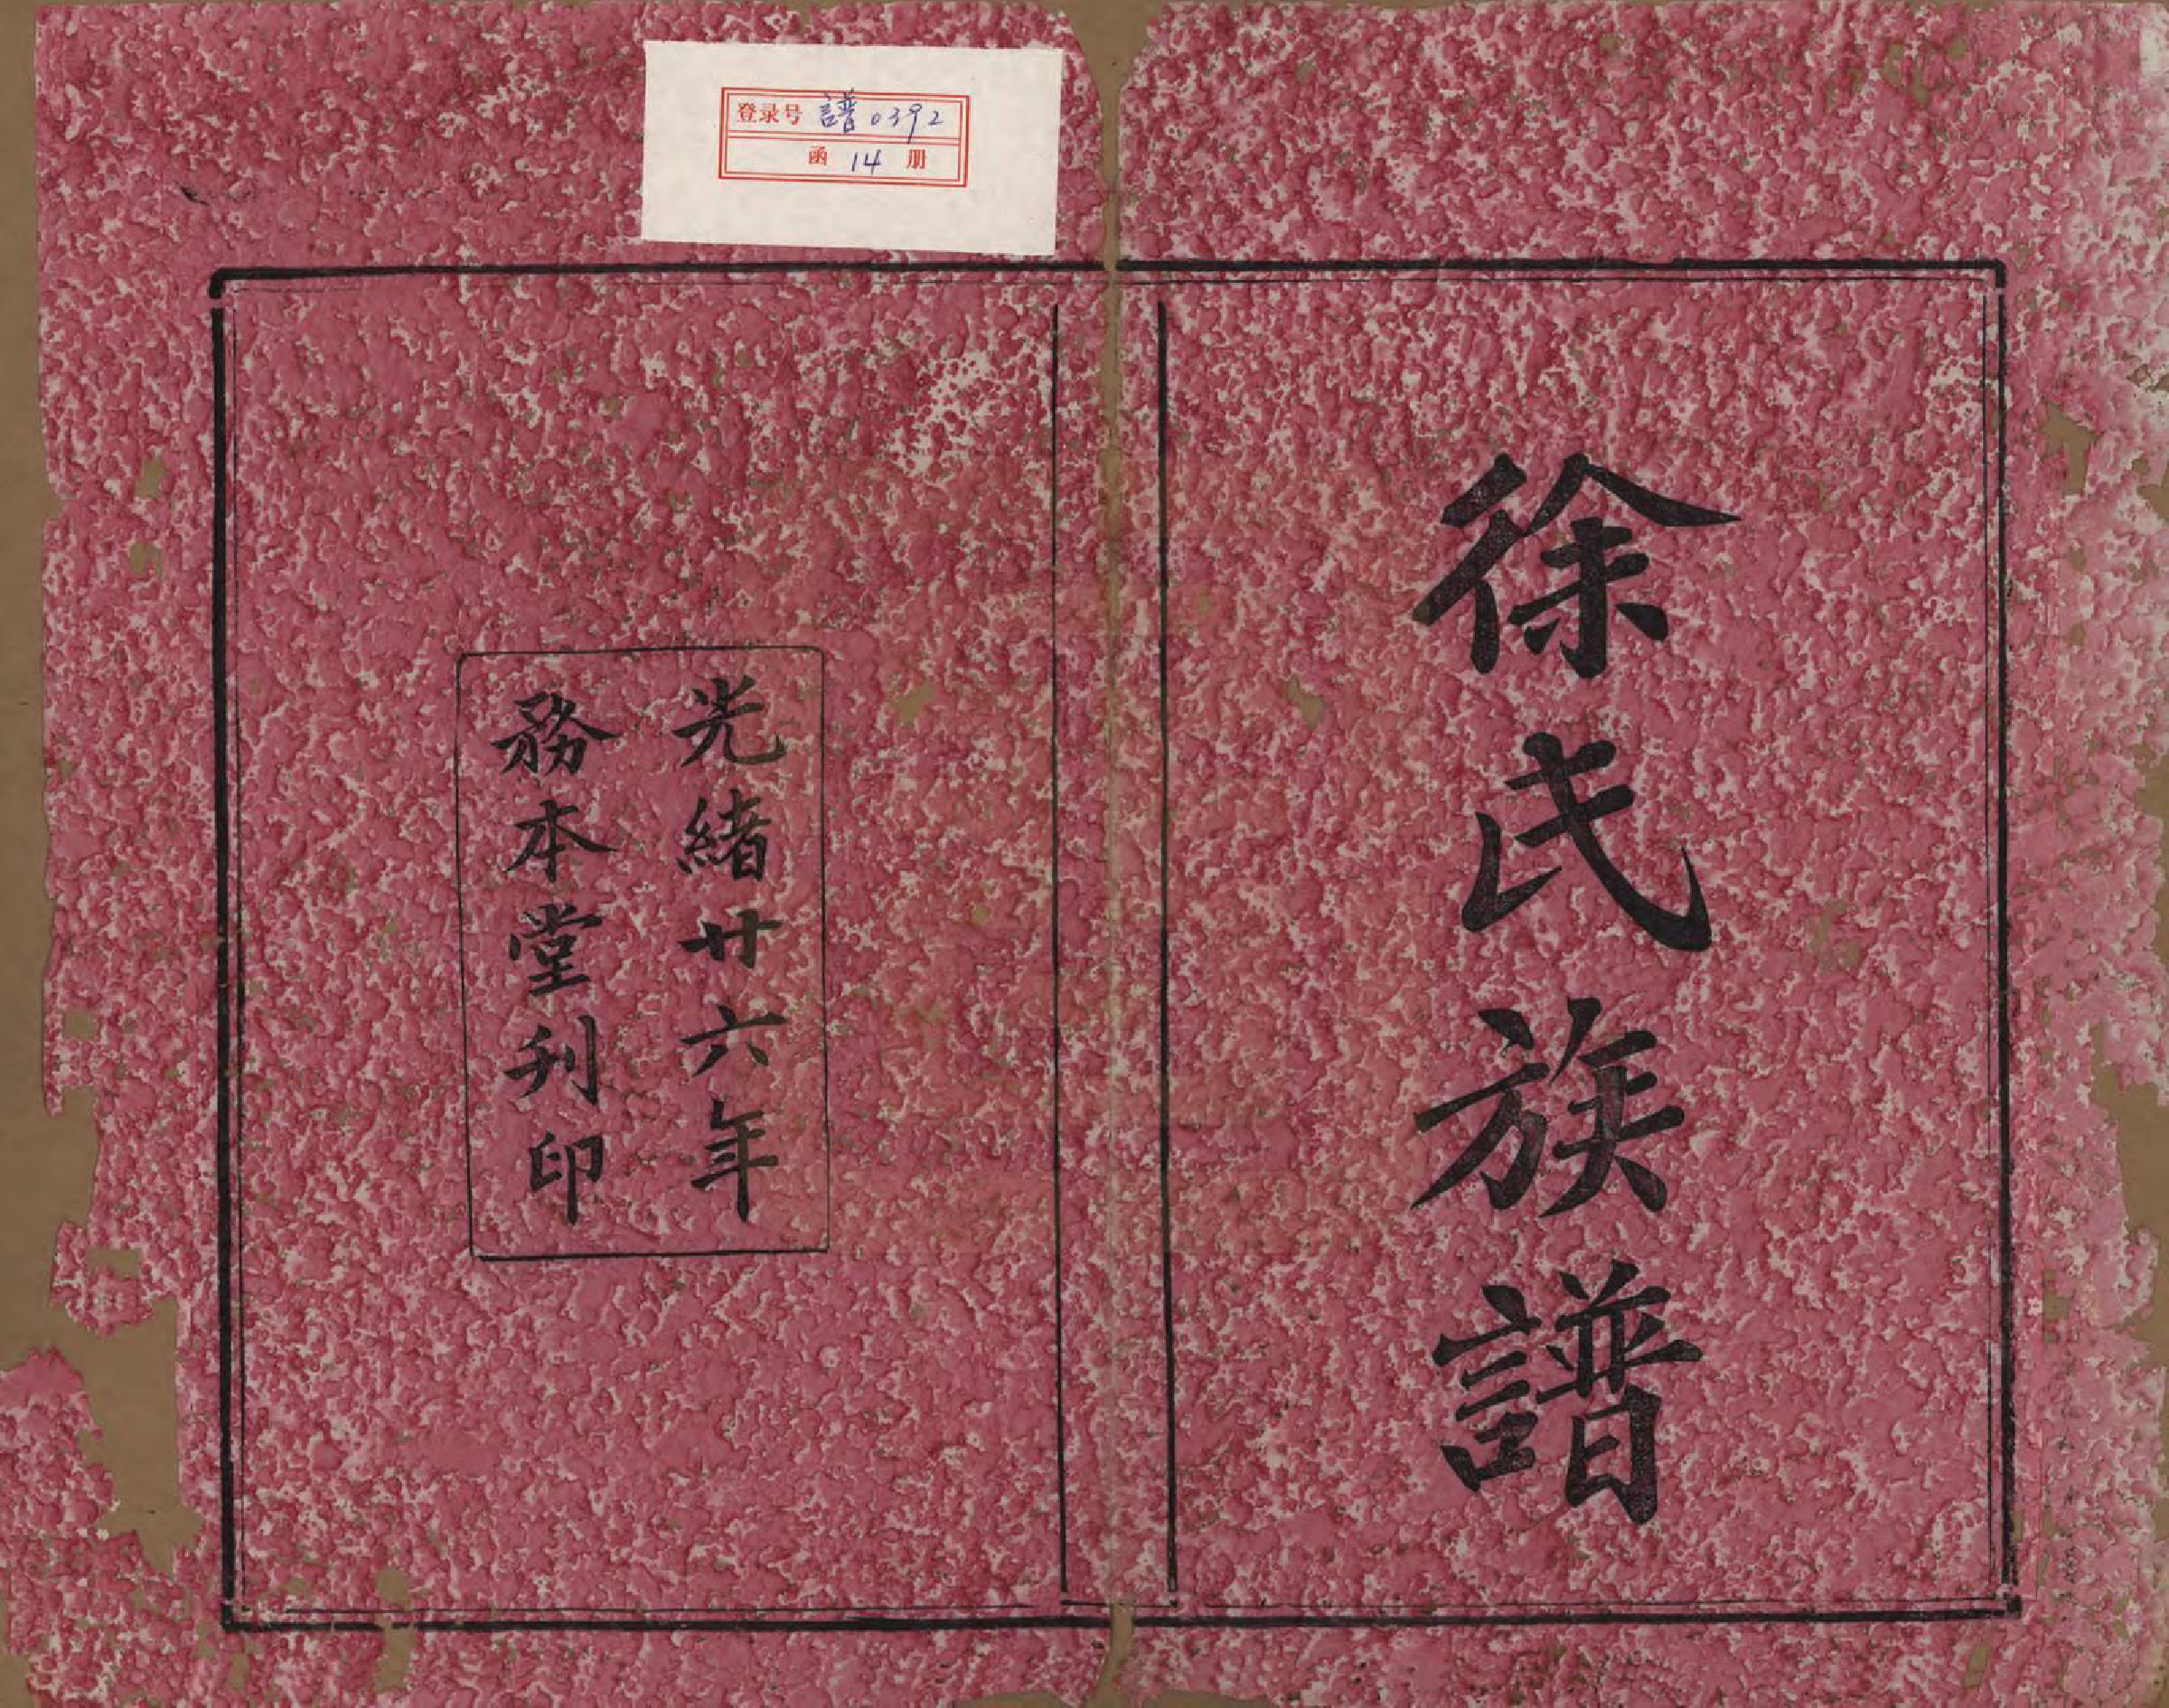 登录号 譜0392
函 14 册
徐氏族譜
光緒廿六年
務本堂刋印